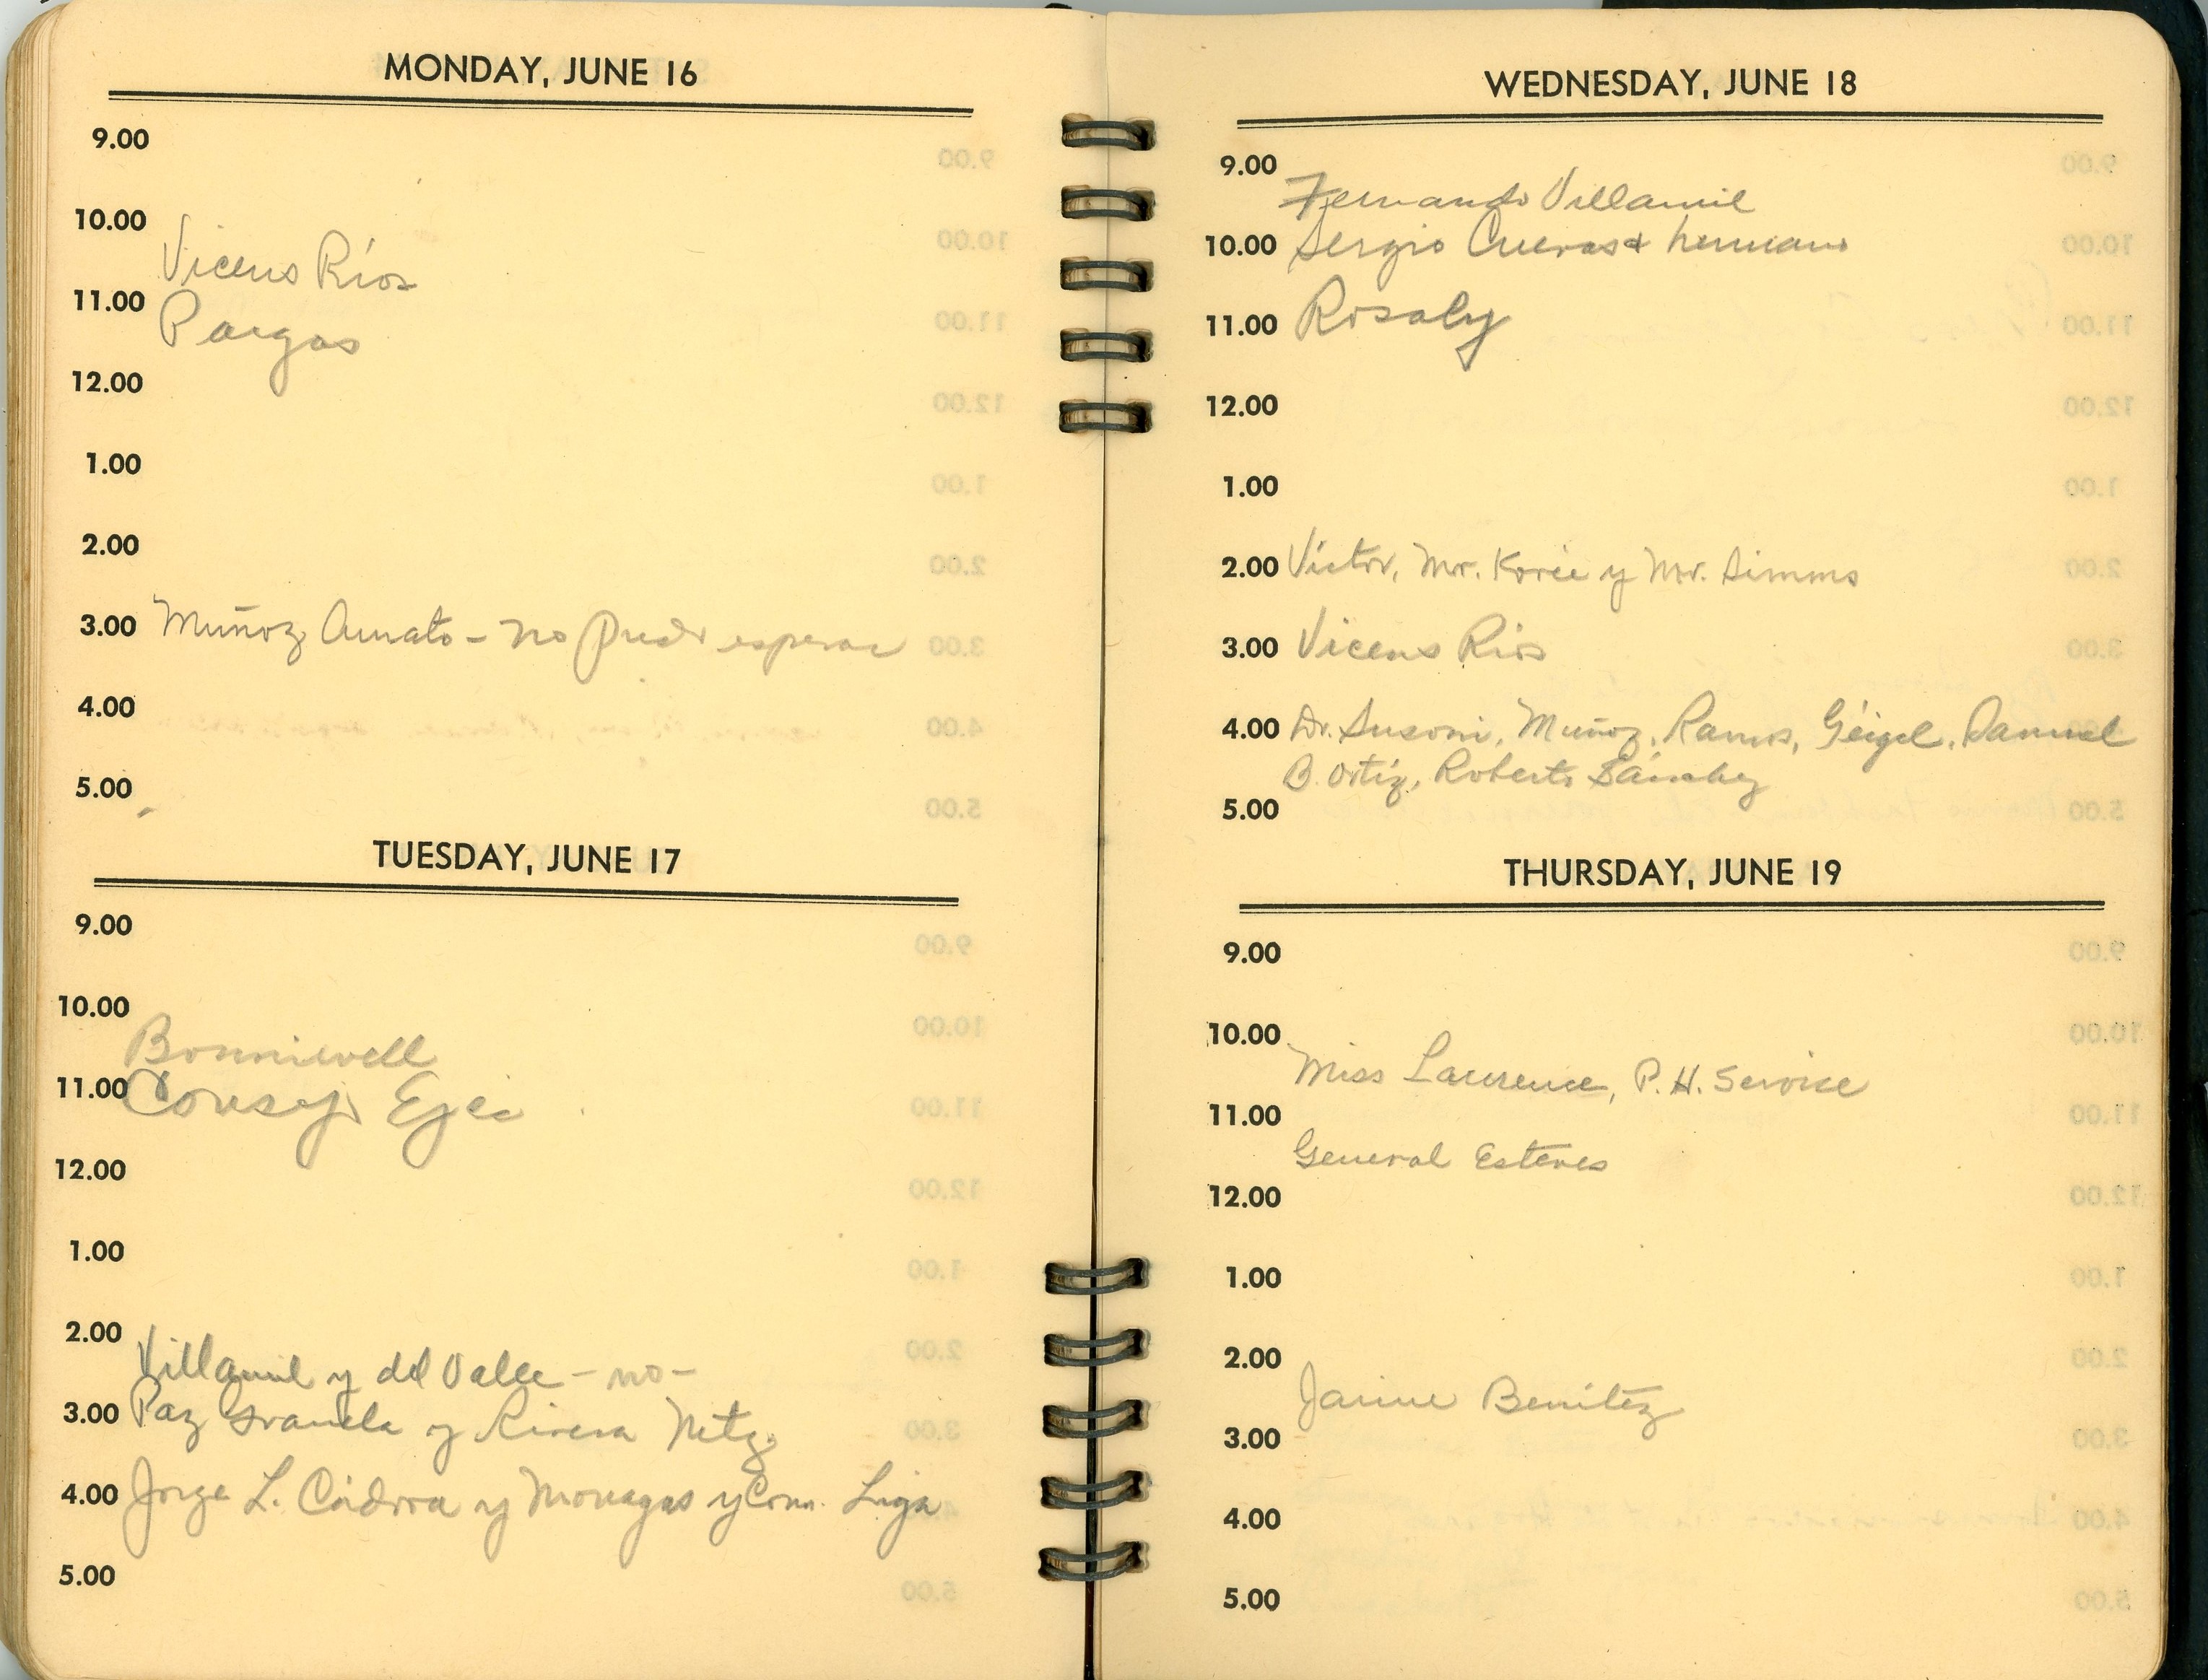 MONDAY, JUNE 16
9.00
10.00
Vicens Ríos
11.00
Pargas
12.00
1.00
2.00
3.00 Muñoz Amato - no pudo esperar
4.00
5.00
TUESDAY, JUNE 17
9.00
10.00
Bonniwell
11.00 Consejo Ejec
12.00
1.00
2.00
Villamil y del Valle - no -
3.00 Paz Granela y Rivera
4.00 Jorge L. Córdova y Monagas y Com. Liga
5.00
WEDNESDAY, JUNE 18
9.00
Fernando Villamil
10.00 Sergio Cuevas & hermano
11.00 Rosaly
12.00
1.00
2.00 Victor, Mr. y Mr. Simms
3.00 Vicens Rios
4.00 Dr. Susoni, Muñoz, Ramos, Géigel, Samuel
B. Ortiz, Roberto Sánchez
5.00
THURSDAY, JUNE 19
9.00
10.00
Miss Lawrence, P.H. Service
11.00
General Esteves
12.00
1.00
2.00
Jaime Benítez
3.00
4.00
5.00